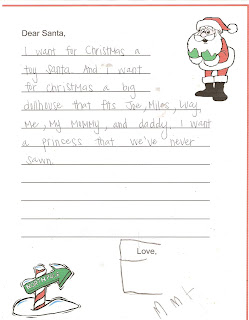 Dear Santa,
I want for Christmas a
toy santa. And I want
for christmas a big
dollhouse that fits Joe, Miles, Lucy,
Me, My Mimmy, and daddy. I want
a princess that we've never
sawn.
Love,
NORTH POLE